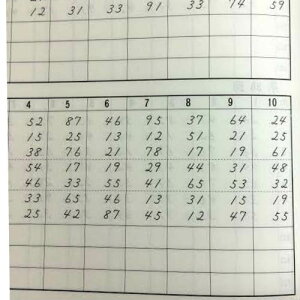 12 31 33 91 33 74 59
4 5 6 7 8 9 10
52 87 46 95 37 64 24
15 25 13 12 51 21 25
38 76 21 78 17 19 61
54 17 19 29 44 31 48
46 33 55 41 65 53 32
33 65 46 13 31 15 19
25 42 87 45 12 47 55